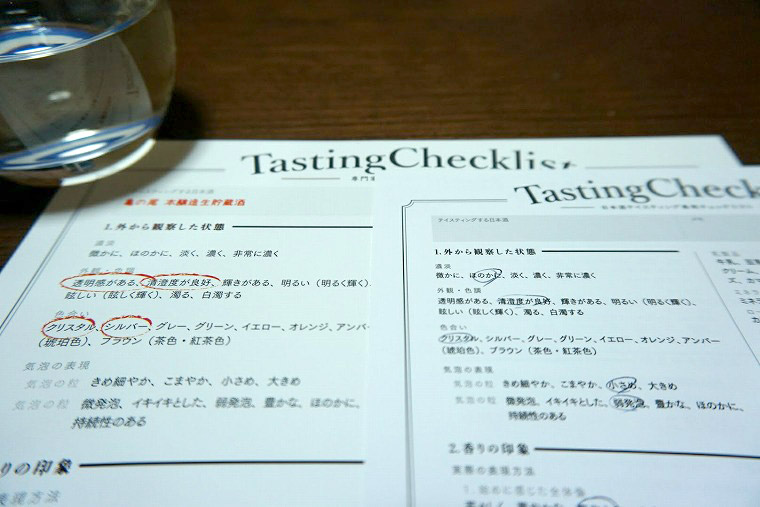 TastingChecklist
亀の尾 本醸造生貯蔵酒
1.外から観察した状態
濃淡
微かに、ほのかに、淡く、濃く、非常に濃く
外観・色調
透明感がある、清澄度が良好、輝きがある、明るい（明るく輝く）、
眩しい（眩しく輝く）、濁る、白濁する
色合い
クリスタル、シルバー、グレー、グリーン、イエロー、オレンジ、アンバー
（琥珀色）、ブラウン（茶色・紅茶色）
気泡の表現
気泡の粒 きめ細やか、こまやか、小さめ、大きめ
気泡の粒 微発泡、イキイキとした、弱発泡、豊かな、ほのかに、
持続性のある
りの印象
表現方法
TastingCheck
テイスティングする日本酒
1.外から観察した状態
濃淡
微かに、ほのかに、淡く、濃く、非常に濃く
外観・色調
透明感がある、清澄度が良好、輝きがある、明るい（明るく輝く）、
眩しい（眩しく輝く）、濁る、白濁する
色合い
クリスタル、シルバー、グレー、グリーン、イエロー、オレンジ、アンバー
（琥珀色）、ブラウン（茶色・紅茶色）
気泡の表現
気泡の粒 きめ細やか、こまやか、小さめ、大きめ
気泡の粒 微発泡、イキイキとした、弱発泡、豊かな、ほのかに、
持続性のある
2.香りの印象
実際の表現方法
1. 始めに感じた全体像
クリーム
ズ、カ
ミネラ